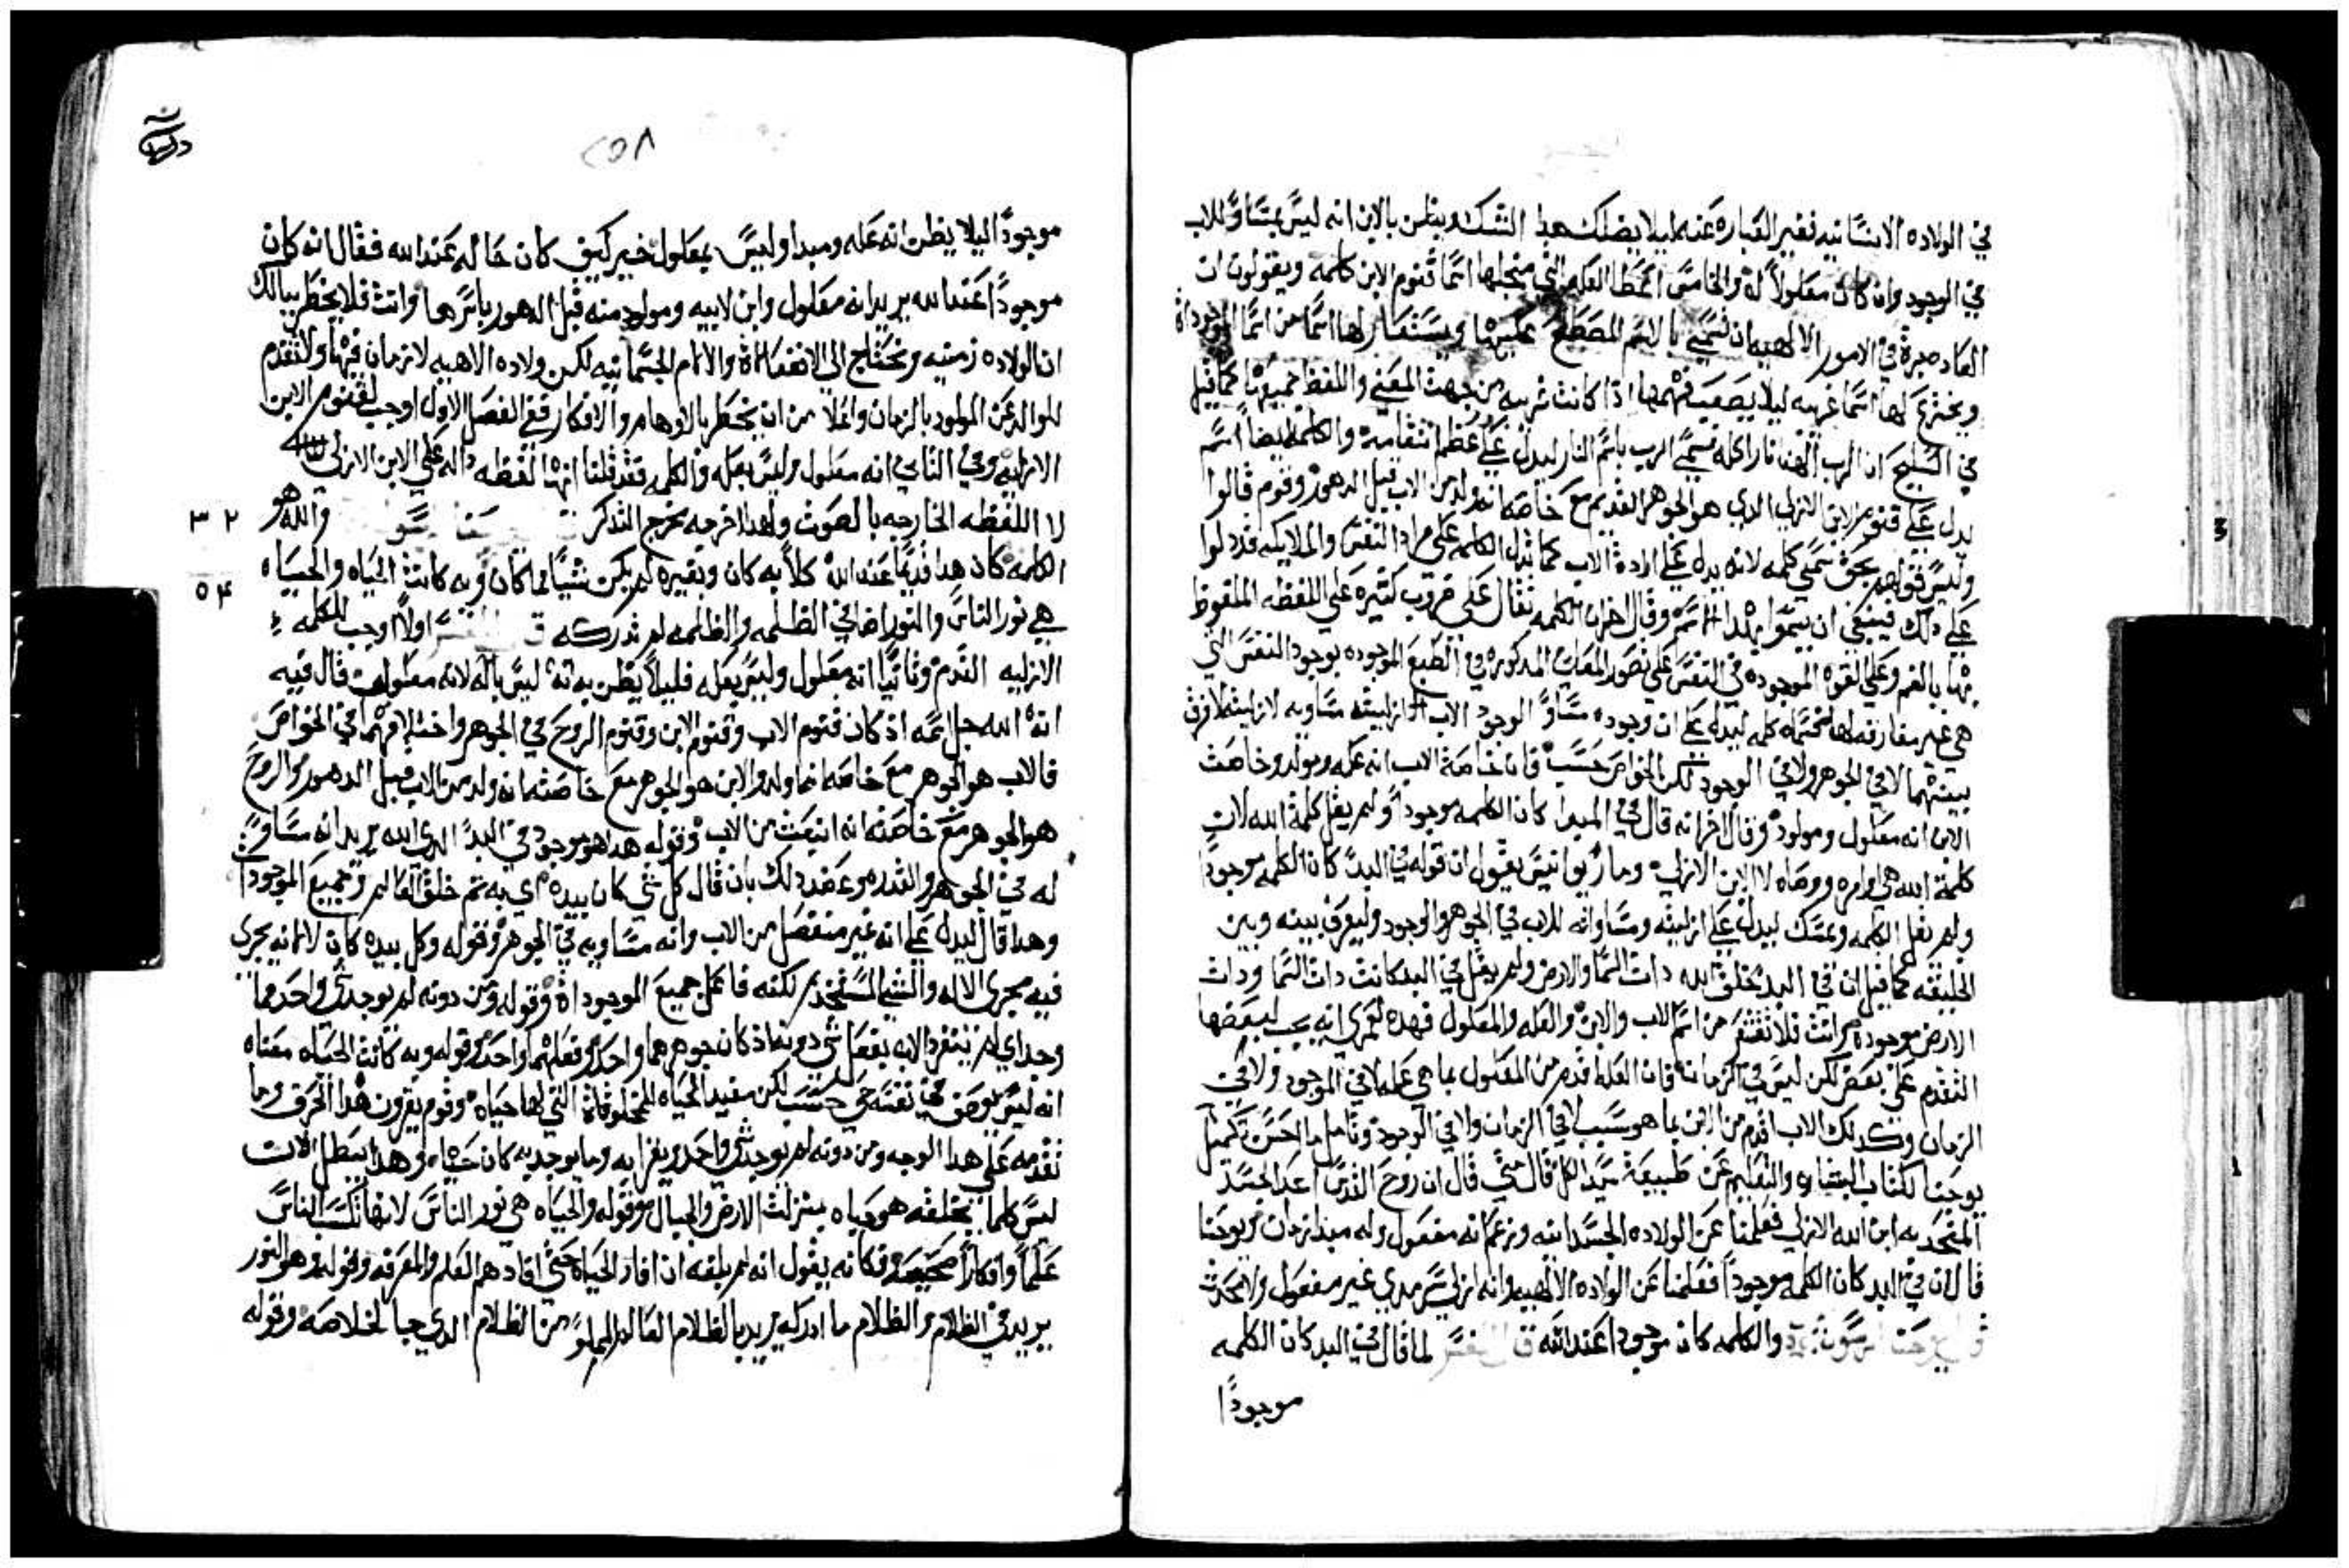 في الولاده الانسانيه فغير العباره عنه ليلا يضلك هدا الشك وبيظن بالابن انه ليس بمساو للاب
في الوجود وان كان معلولاً له والخامس اعطا العله التي من اجلها اسما قنوم الابن كلمه ويقولون ان
العاده جرة في الامور الالهيه ان تسمي بالاسم المصطلح عليها ويستعار لها اسما من اسما الموجوداة
ويخترع لها اسما غريبه ليلا يصعب فهمها اذا كانت غريبه من جهت المعني واللفظ جميعها كما قيل
في التسبيح ان الرب الهنا نار اكله فسمي الرب باسم النار ليدل علي عظم انتقامه والكلمه ايضا اسم
يدل علي قنوم الابن الازلي الدي هو الجوهر القديم مع خاصه انه ولد من الاب قبل الدهور وقوم قالوا
وليس قولهم بحق سمي كلمه لانه يدل علي ارادة الاب كما تدل الكلمه علي مراد النفس والملايكه فقد دلوا
علي دلك فينبغي ان يسموا بهدا الاسم وقال اخر ان الكلمه تقال علي ضروب كتيره علي اللفظه الملفوظ
بها بالفم وعلي القوه الموجوده في النفس علي تصور المعاني المدكوره في الطبع الموجوده بوجود النفس التي
هي غير مفارقه لها فسماه كلمه ليدل علي ان وجوده مساو لوجود الاب وازليته مساويه لازليته لا فرق
بينهما لا في الجوهر ولا في الوجود لكن الخواص حسب فان خاصة الاب انه عله ومولد وخاصت
الابن انه معلول ومولود وقال اخر انه قال في المبدا كان الكلمه موجوداً ولم يقل كلمة الله لان
كلمة الله هي اوامره ووصاه لا الابن الازلي وما ريوانيس يقول ان قوله في البد كان الكلمه موجوداً
ولم يقل الكلمه وتمسك ليدل علي ازليته ومساواته للاب في الجوهر والوجود وليفرق بينه وبين
الخليقه كما قيل ان في البد خلق الله دات السما والارض ولم يقل في البد كانت دات السما ودات
الارض موجوده وانت فلا تقشعر من اسم الاب والابن والعله والمعلول فهده لعمري انه يجب لبعضها
التقدم علي بعض لكن ليس في الزمان فان العله اقدم من المعلول بما هي عله لا في الوجود ولا في
الزمان وكدلك الاب اقدم من الابن بما هو سبب لا في الزمان ولا في الوجود وتامل ما احسن تكميل
يوحنا لكتاب البشاره والتعليم عن طبيعة سيد الكل قال متي قال ان روح القدس اعد الجسد
المتحد به ابن الله الازلي فعلمنا عن الولاده الجسدانيه وزعم انه مفعول وله مبدا زمان ويوحنا
قال ان في البد كان الكلمه موجوداً فعلمنا عن الولاده الالهيه وانه ازلي سرمدي غير مفعول ولا محدث
قول يوحنا الرسول والكلمه كان موجوداً عند الله قال المفسر لما قال في البد كان الكلمه
موجوداً
٢٥٨
موجوداً ليلا يظن انه عله ومبدا وليس بمعلول خبر كيف كان حاله عند الله فقال انه كان
موجوداً عند الله يريد انه معلول وابن لابيه ومولود منه قبل الدهور باسرها وانت فلا يخطر ببالك
ان الولاده زمنيه وتحتاج الي الانفعالاة والالام الجسمانيه لكن ولاده الاهيه لا زمان فيها ولا تقدم
للوالد عن المولود بالزمان واعلا من ان يخطر بالاوهام والافكار ففي الفصل الاول اوجب لقنوم الابن
الازليه وفي التاني انه معلول وليس بعله والكلمه فقد قلنا انها لفظه داله علي الابن الازلي
لا اللفظه الخارجه بالصوت ولهدا اخرجه مخرج التدكر والله هو
الكلمه كان هدا قديماً عند الله كلاً به كان وبغيره لم يكن شيا مما كان وبه كانت الحياه والحياه
٣٢
٥٤
هي نور الناس والنور اضا في الظلمه والظلمه لم تدركه قال المفسر اولاً اوجب للكلمه
الازليه القدم وتانياً انه معلول وليس بعله فليلا يظن به انه ليس بالاه لانه معلول قال فيه
انه الله جل اسمه اد كان قنوم الاب وقنوم الابن وقنوم الروح في الجوهر واحد واختلافهم في الخواص
فالاب هو الجوهر مع خاصه انه والد والابن هو الجوهر مع خاصته انه ولد من الاب قبل الدهور والروح
هو الجوهر مع خاصته انه انبعث من الاب وقوله هدا هو موجود في البد الدي الله يريد انه مساو
له في الجوهر والقدم وعضد دلك بان قال كل شي كان بيده اي به تم خلق العالم وجميع الموجوداة
وهدا قال ليدل علي انه غير منفصل من الاب وانه مساويه في الجوهر وقوله وكل بيده كان لا انه يجري
فيه مجري الاله والشي المستخدم لكنه فاعل جميع الموجوداة وقوله ومن دونه لم يوجد شي واحد مما
وجد اي لم يتفرد الاب بفعل شي دونه اذ كان جوهرهما واحد وفعلهما واحد وقوله وبه كانت الحياه معناه
انه ليس يوصف في نفسه حي حسب لكن مفيد الحياه للمخلوقاة التي لها حياه وقوم يقرون هدا الحرف وما
تقدمه علي هدا الوجه ومن دونه لم يوجد شي واحد ويقرا به وما يوجد به كان حياه وهدا يبطل لان
ليس كلما يخلقه هو حياه بمنزلت الارض والجبال وقوله والحياه هي نور الناس لانها تكسب الناس
علماً وافكاراً صحيحه فكانه يقول انه لم يلبقه ان افاد الحياة حتي افادهم العلم والمعرفه وقوله وهو النور
يريد في الظلام والظلام ما ادركه يريد بالظلام العالم المملو من الظلام الدي جا لخلاصه وقوله